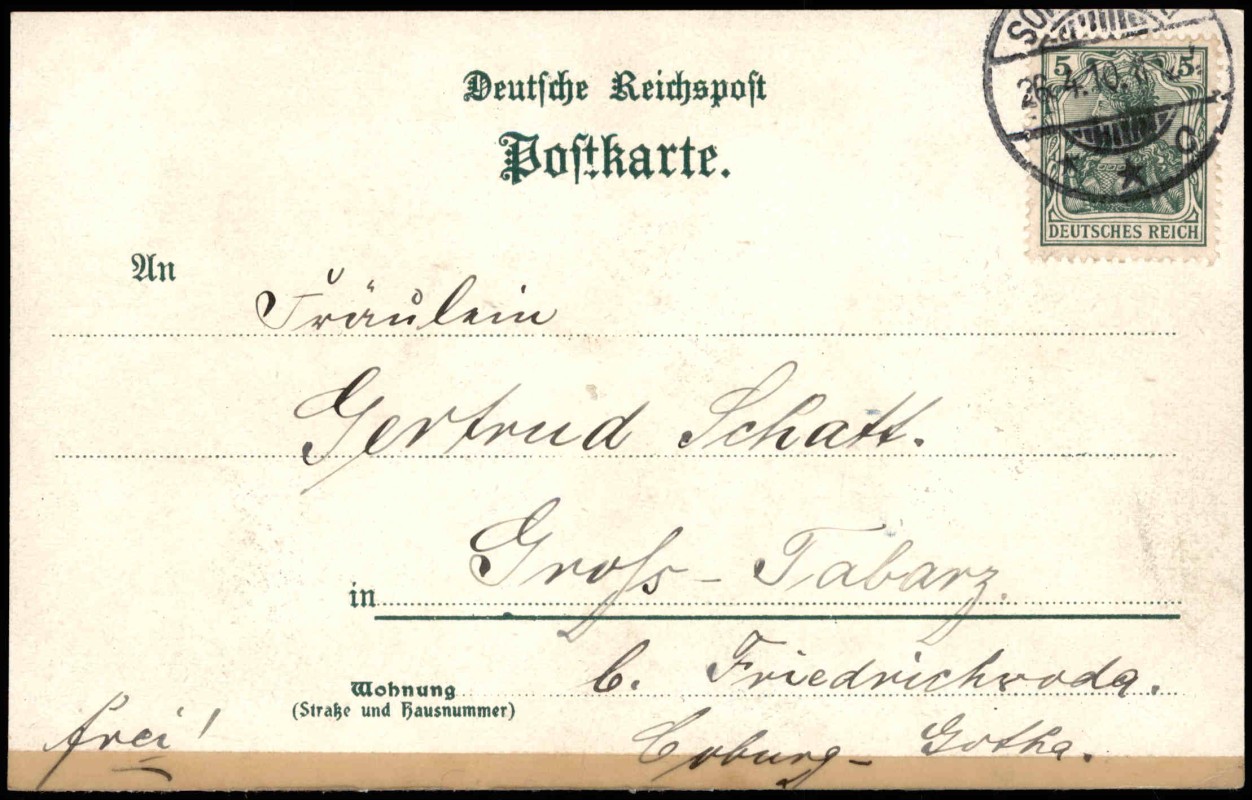 Deutsche Reichspost
Postkarte.
5 5
26.4.10.
c
* *
DEUTSCHES REICH
An
Fräulein
Gertrud Schatt.
in Gross-Tabarz.
b. Friedrichroda.
Wohnung
(Straße und Hausnummer)
frei!
Coburg-Gotha.